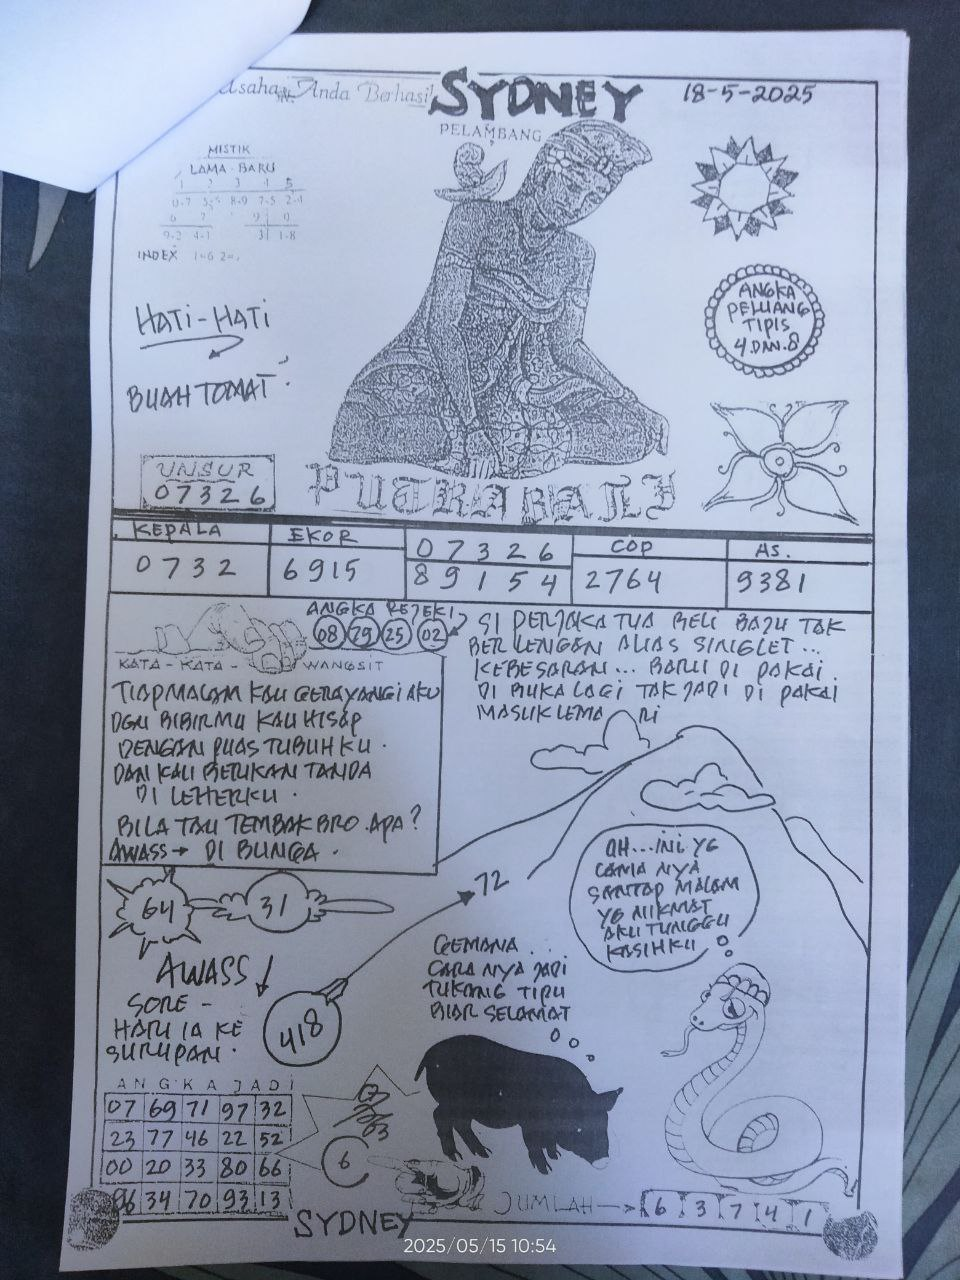 Anda Berhasil
SYDNEY
18-5-2025
PELAMBANG
MISTIK
LAMA - BARU
1 2 3 4 5
0-7 8-9 7-5 2-4
6 7 9 0
9-2 4-1 3 1-8
INDEX 1=6
HATI-HATI
BUAH TOMAT
ANGKA
PELUANG
TIPIS
4 DAN 8
UNSUR
07326
PUTRA BALI
KEPALA EKOR 07326 COP AS.
0732 6915 89154 2764 9381
ANGKA REJEKI
08 79 25 02
SI PERJAKA TUA BELI BAJU TAK
BERLENGAN ALIAS SINGLET...
KEBESARAN... BARU DI PAKAI
DI BUKA LAGI TAK JADI DI PAKAI
MASUK LEMARI
KATA - KATA - WANGSIT
TIAP MALAM KAU GERAYANGI AKU
DGN BIBIRMU KAU HISAP
DENGAN PUAS TUBUHKU.
DAN KAU BERIKAN TANDA
DI LEHERKU.
BILA TAU TEMBAK BRO. APA?
AWASS → DI BUNGA.
64
31
72
AWASS
SORE -
HARI IA KE
SURUPAN.
418
OH...INI YG
NYA
SANTAP MALAM
YG NIKMAT
AKU TUNGGU
KASIHKU
GEMANA..
CARA NYA JADI
TUKANG TIPU
BIAR SELAMAT
ANGKA JADI
07 69 71 97 32
23 77 46 22 52
00 20 33 80 66
96 34 70 93 13
6
JUMLAH → 6 3 7 4 1
SYDNEY
2025/05/15 10:54